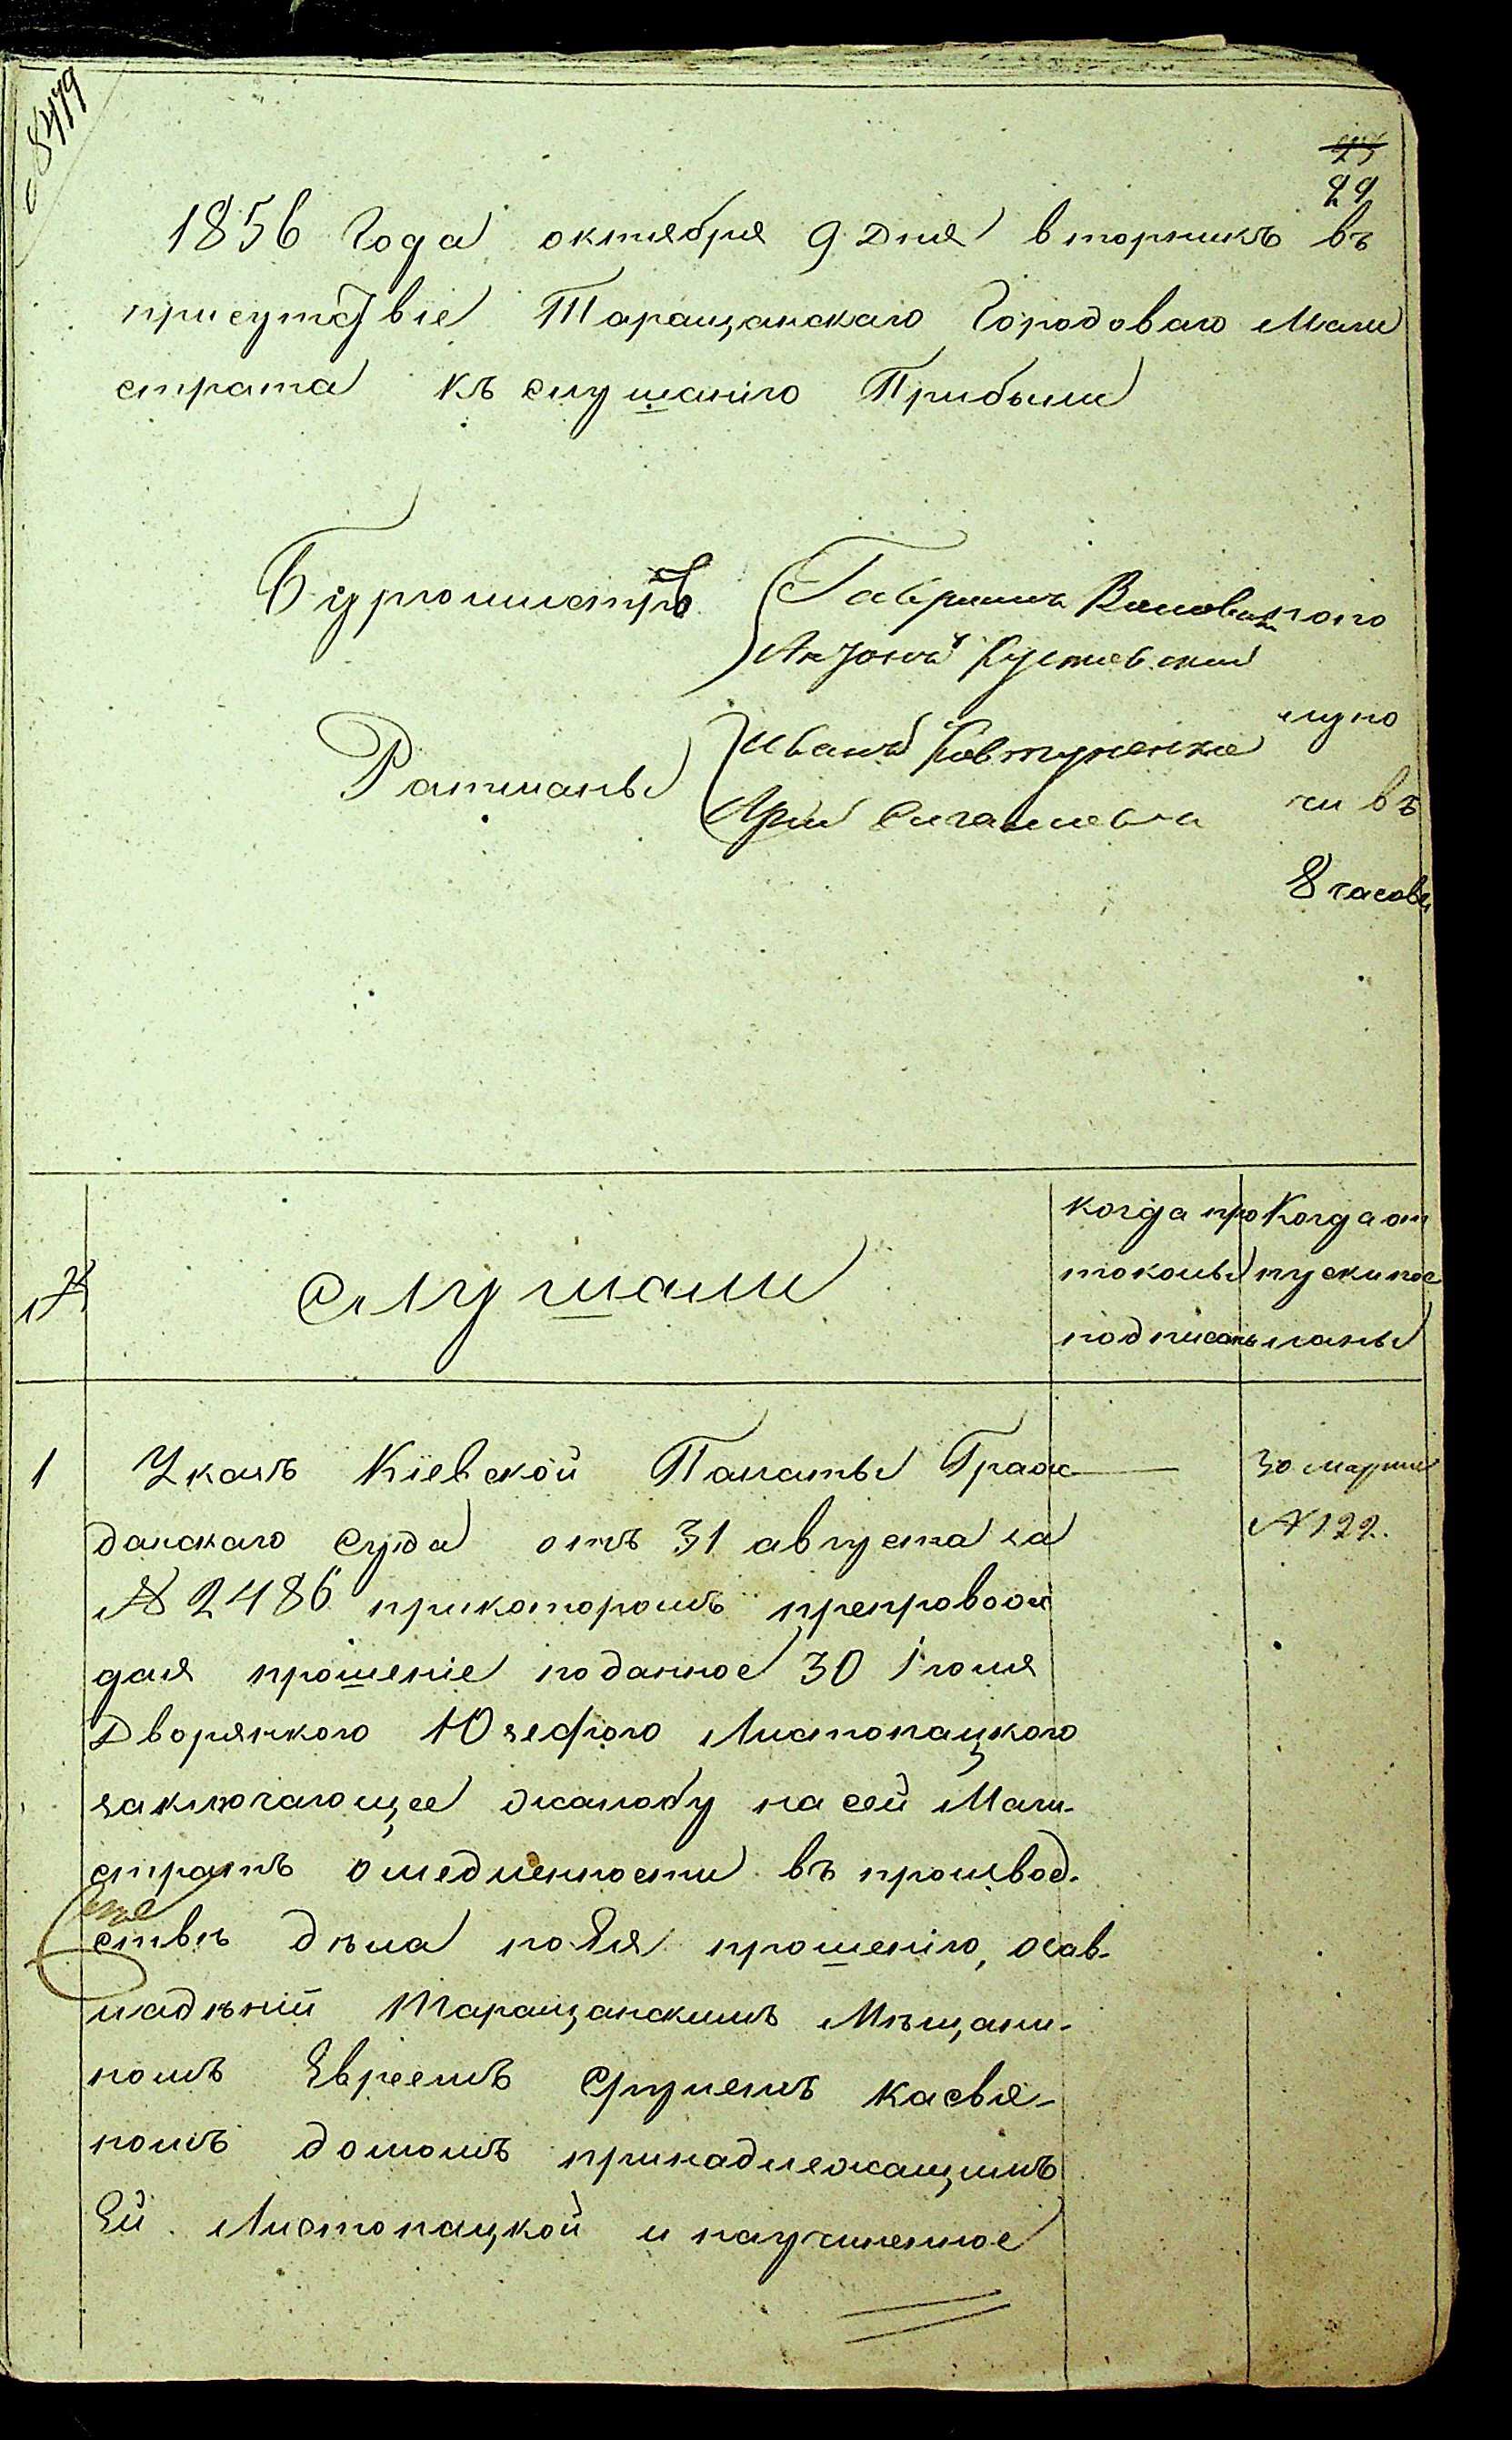 8479
25
29
1856 Года октября 9 дня вторникъ въ
присутствіе Таращанскаго Городоваго Маги
страта къ слушанію Прибыли
Бургомистръ
Гавриилъ
Антоній
Ратманы
Иванъ Ковтуненко
Арій
въ
8 часовъ
№
Слушали
Когда про
токолы
подписаны
Когда от
пуски пос
ланы
1 Указъ Кіевской Палаты Граж
данскаго Суда отъ 31 августа за
№ 2486 прикоторомъ препровож
дая прошеніе поданное 30 Іюля
Дворянкою Юзефою Листопацкою
заключающее жалобу на сей Маги-
стратъ омедленности въ производ-
ствѣ дѣла поЕя прошенію, озав-
ладѣніи Таращанскимъ Мѣщани-
номъ Евреемъ Срулемъ Касья-
номъ домомъ принадлежащимъ
Ей Листопацкой и научиненное
30 марта
№ 122.